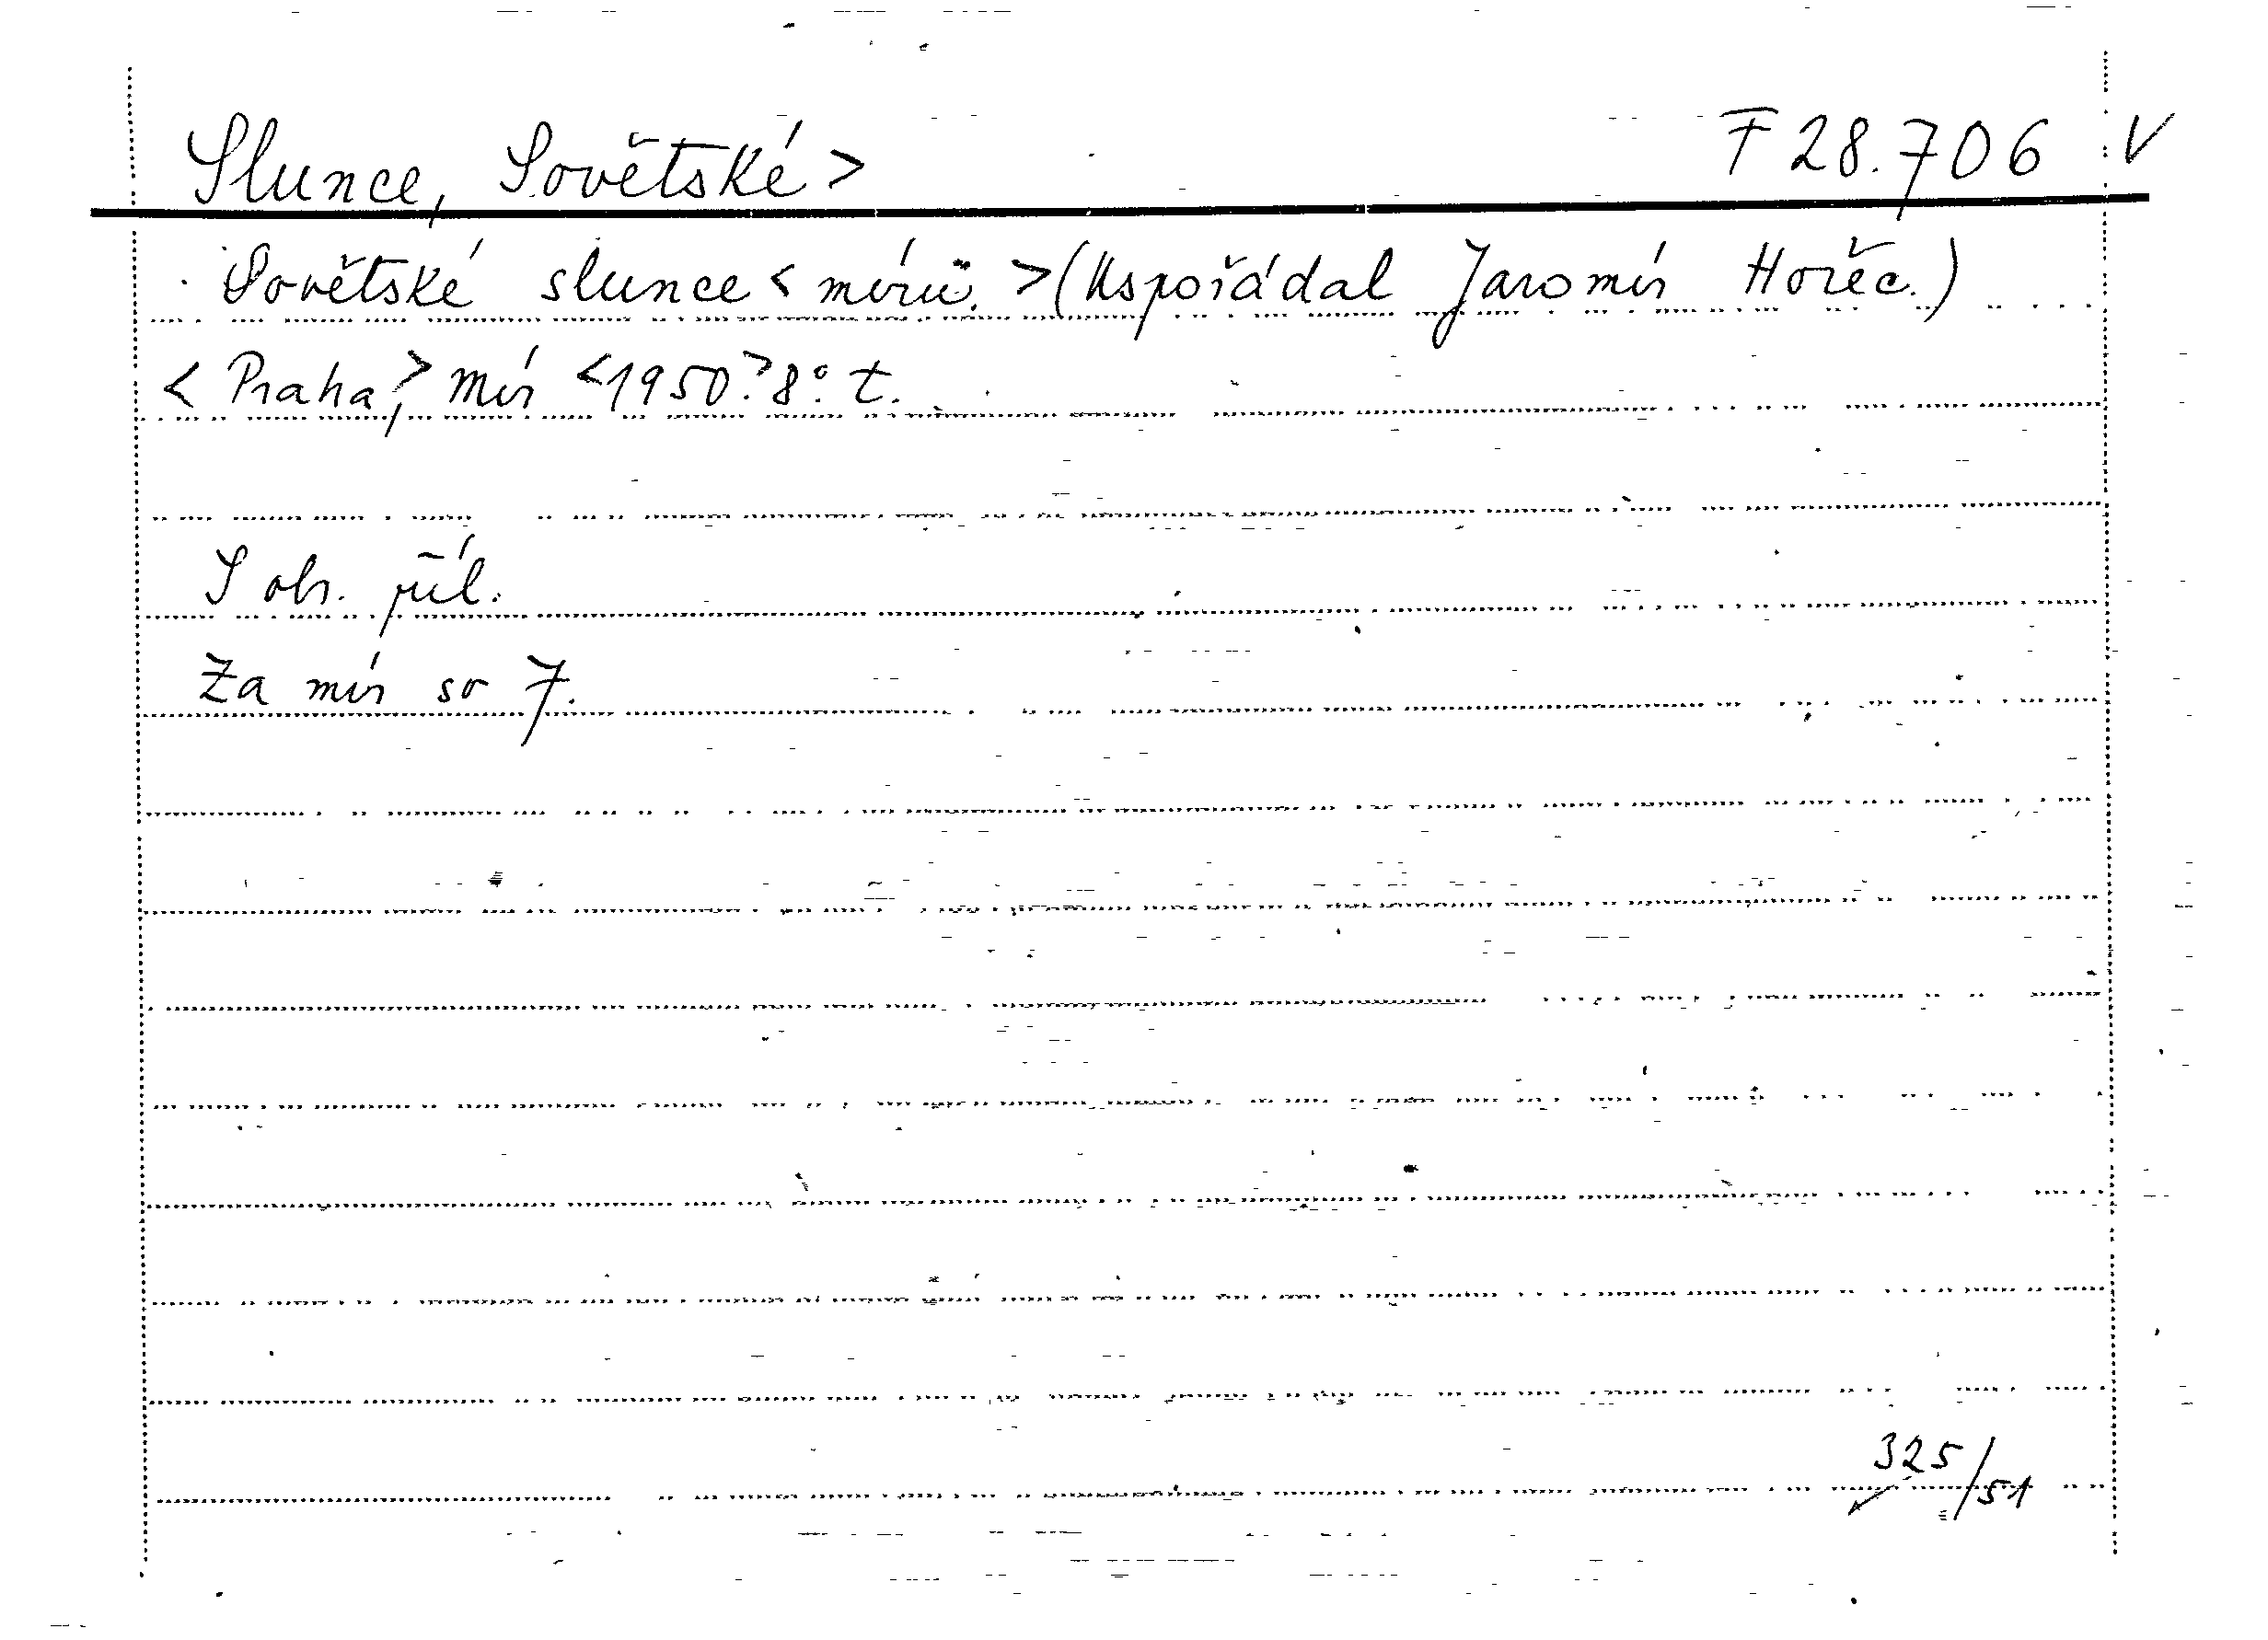 Slunce, Sovětské > F 28.706 V
Sovětské slunce < míru. > (Uspořádal Jaromír Hořec.)
< Praha, > Mír < 1950. > 8° t.
S obr. příl.
Za mír sv 7.
325/51